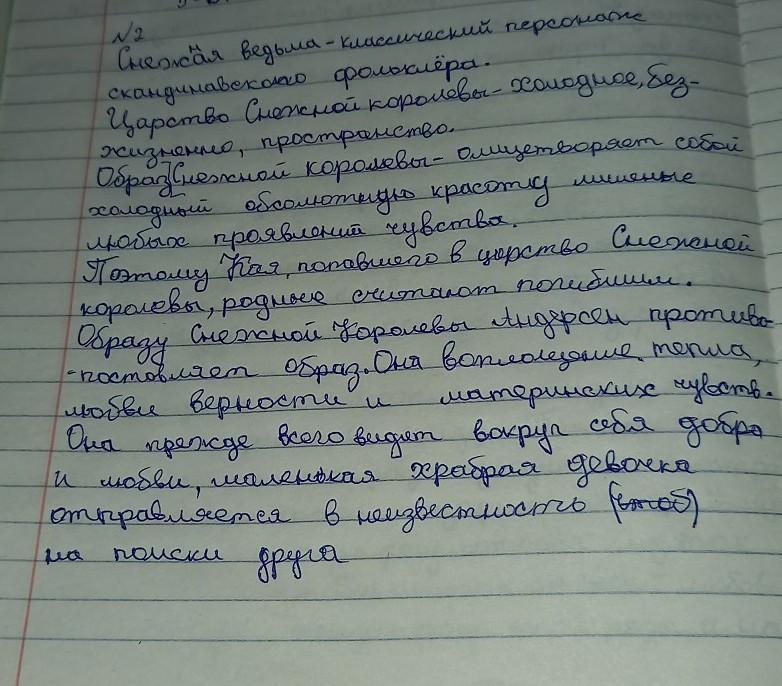 №2
Снежная ведьма - классический персонаж
скандинавского фольклёра.
Царство Снежной королевы - холодное, без-
жизненно, пространство.
Образ Снежной королевы - олицетворяет собой
холодный абсолютную красоту лишеные
любых проявлений чувства.
Поэтому Кая, попавшего в царство Снежной
королевы, родные считают погибшим.
Образу Снежной Королевы Андерсен противо-
-поставляет образ. Она воплощение тепла,
любви верности и материнских чувств.
Она прежде всего видет вокруг себя добра
и любви, маленькая храбрая девочка
отправляется в неизвестность
на поиски друга